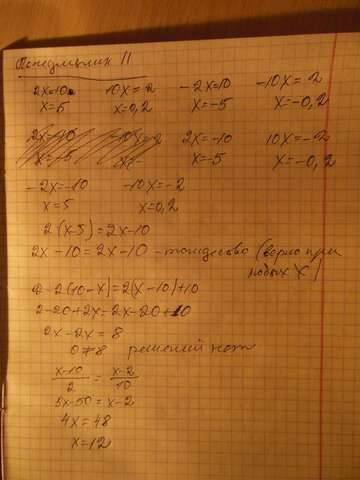 Понедельник 11
2x=10 10x=2 -2x=10 -10x=2
x=5 x=0,2 x=-5 x=-0,2
2x=-10 10x=-2
x=-5 x=-0,2
-2x=-10 -10x=-2
x=5 x=0,2
2(x-5)=2x-10
2x-10=2x-10 - тождество (верно при
любых x)
2-2(10-x)=2(x-10)+10
2-20+2x=2x-20+10
2x-2x=8
0≠8 решений нет
x-10/2 = x-2/10
5x-50=x-2
4x=48
x=12